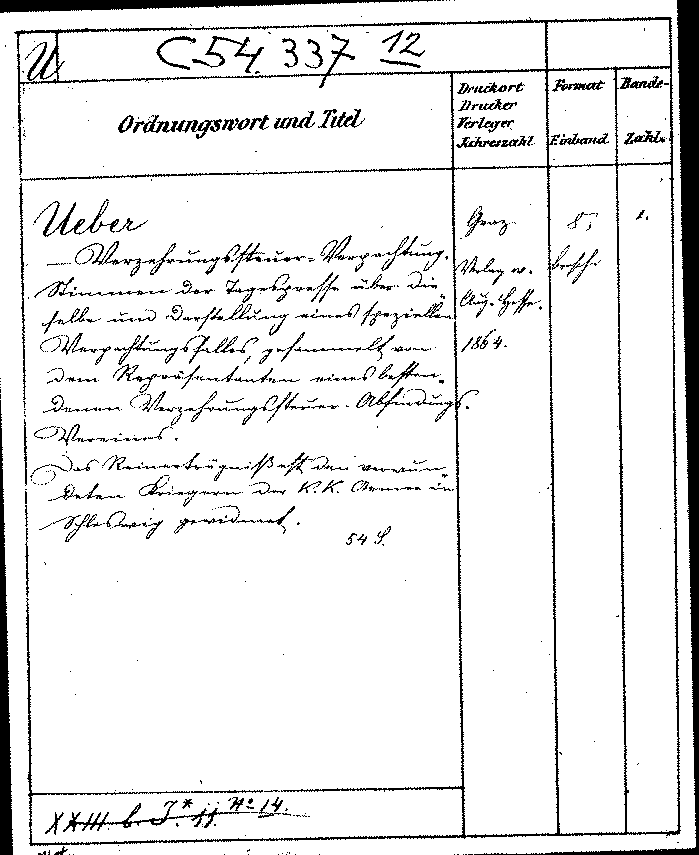 U C 54.337 12
Ordnungswort und Titel
Druckort
Drucker
Verleger
Jahreszahl
Format
Einband
Bände-
Zahl.
Ueber
— Verzehrungssteuer-Verpachtung.
Stimmen der Tagespresse über die
selbe und Darstellung eines speziellen
Verpachtungsfalles, gesammelt von
dem Repräsentanten eines bestan-
denen Verzehrungssteuer-Abfindungs-
Vereines.
Das Reinerträgniß ist den verwun-
deten Kriegern der K. K. Armee in
Schleswig gewidmet.
54 S.
Graz.
Verlag v.
Aug. Hesse.
1864.
8°;
brosch.
1.
XXIII. b. J* 11. No 14.